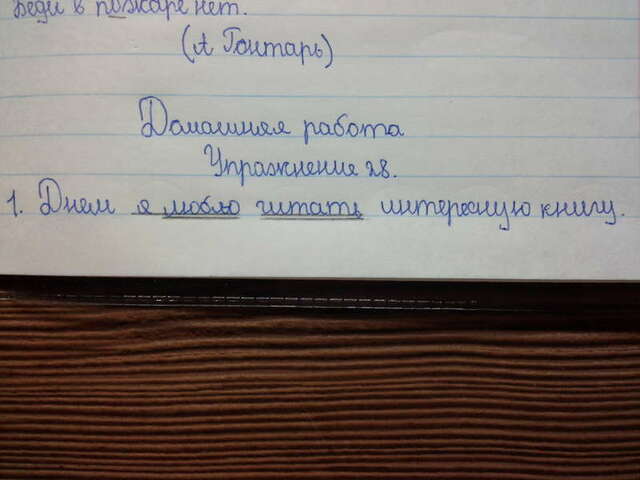 Беди в пожаре нет.
(А Гонтарь)
Домашняя работа
Упражнение 28.
1. Днем я люблю читать интересную книгу.